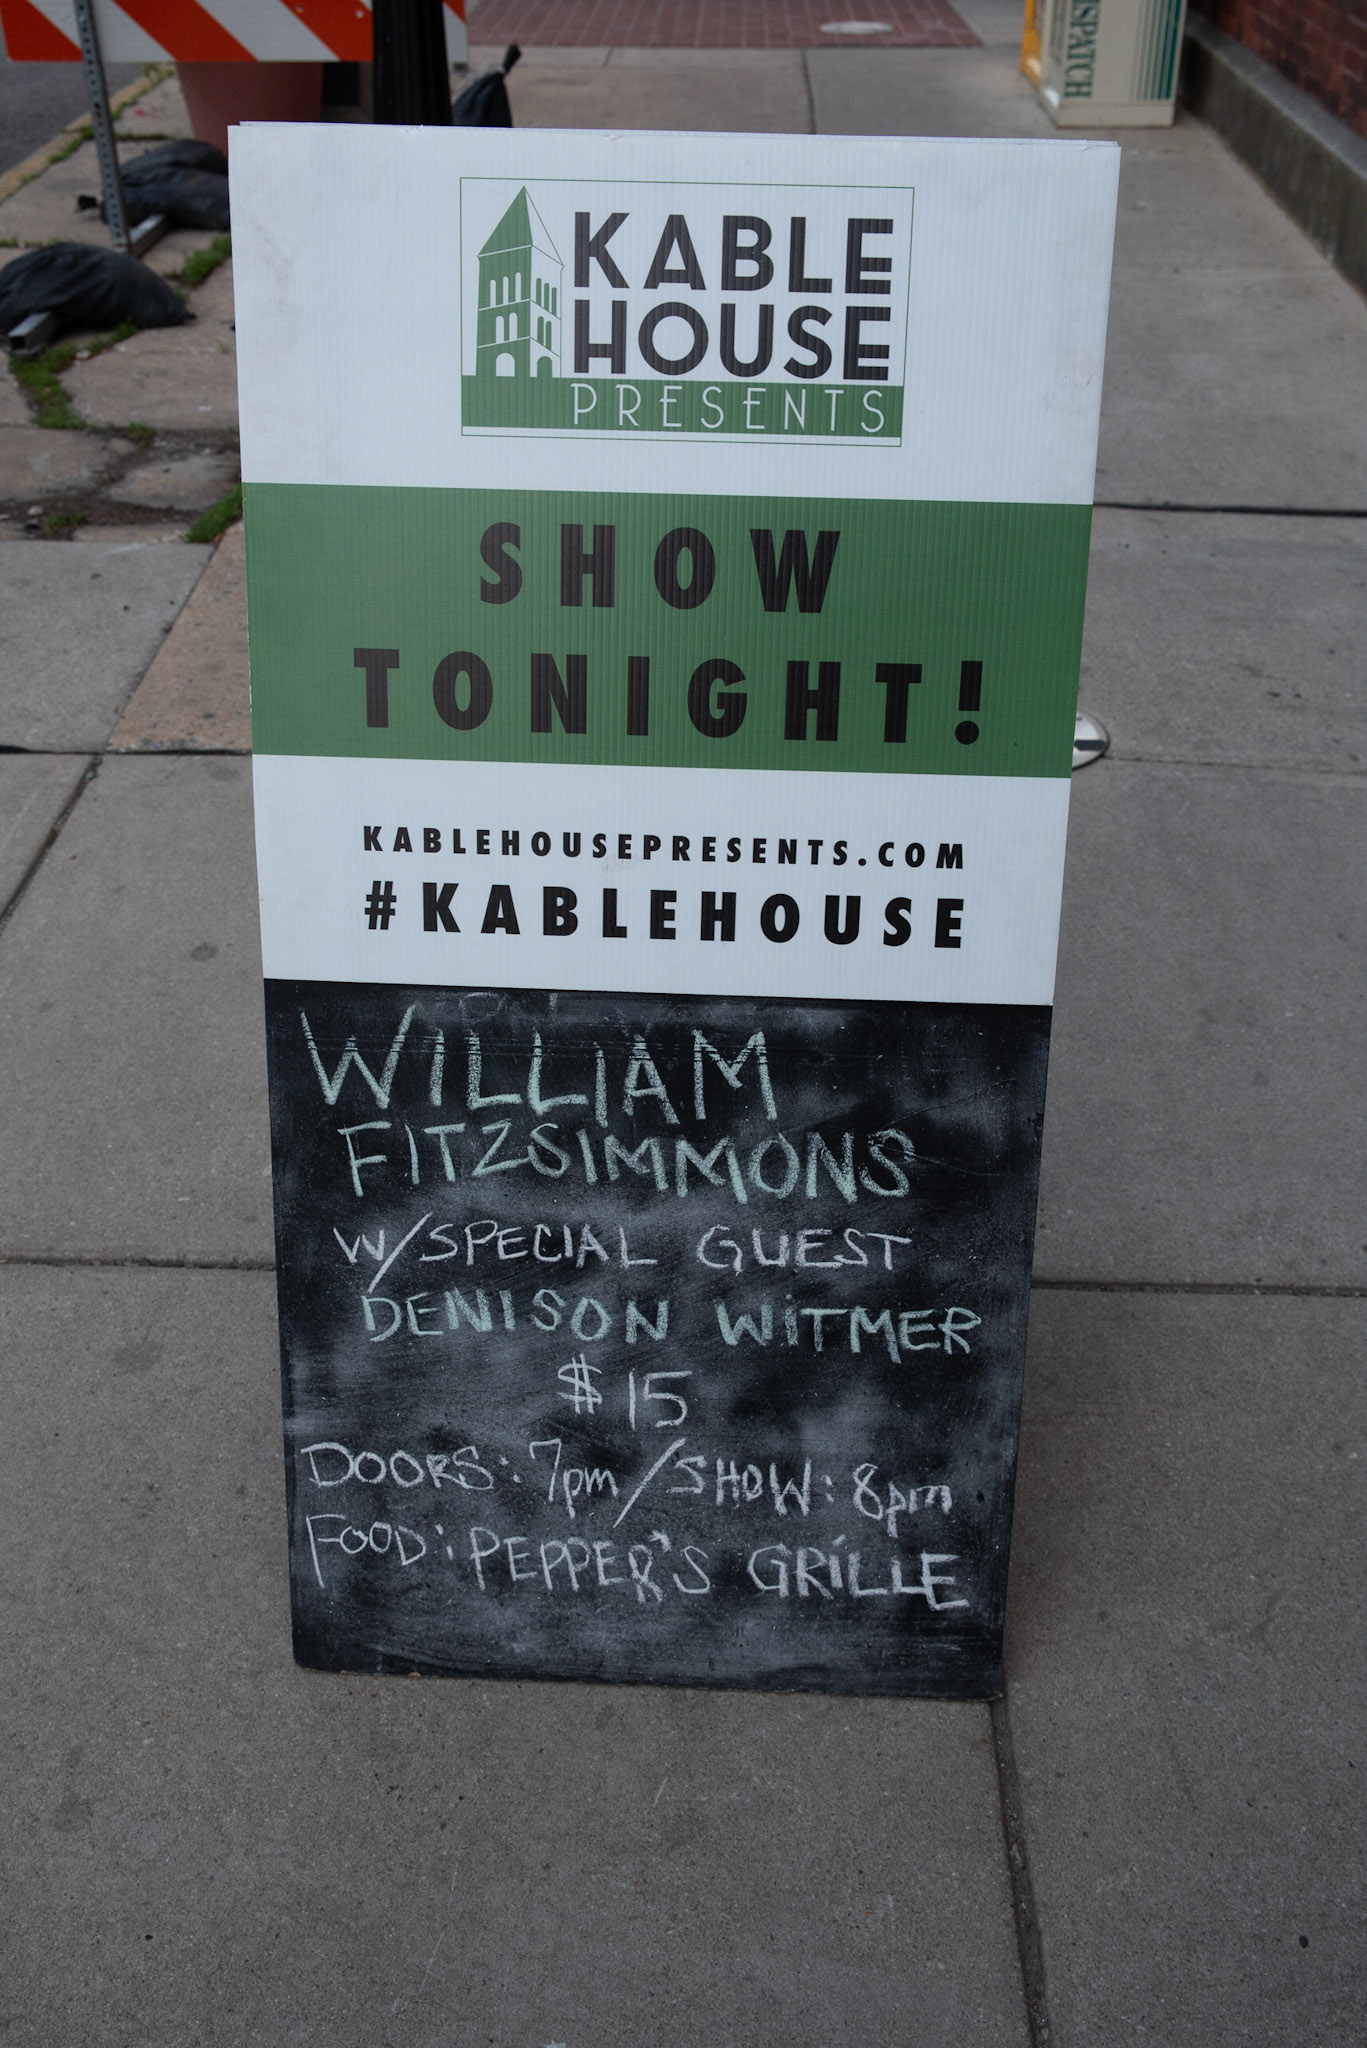 ISPATCH
KABLE
HOUSE
PRESENTS
SHOW
TONIGHT!
KABLEHOUSEPRESENTS.COM
#KABLEHOUSE
WILLIAM
FITZSIMMONS
W/SPECIAL GUEST
DENISON WITMER
$15
DOORS: 7pm / SHOW: 8pm
FOOD: PEPPER'S GRILLE